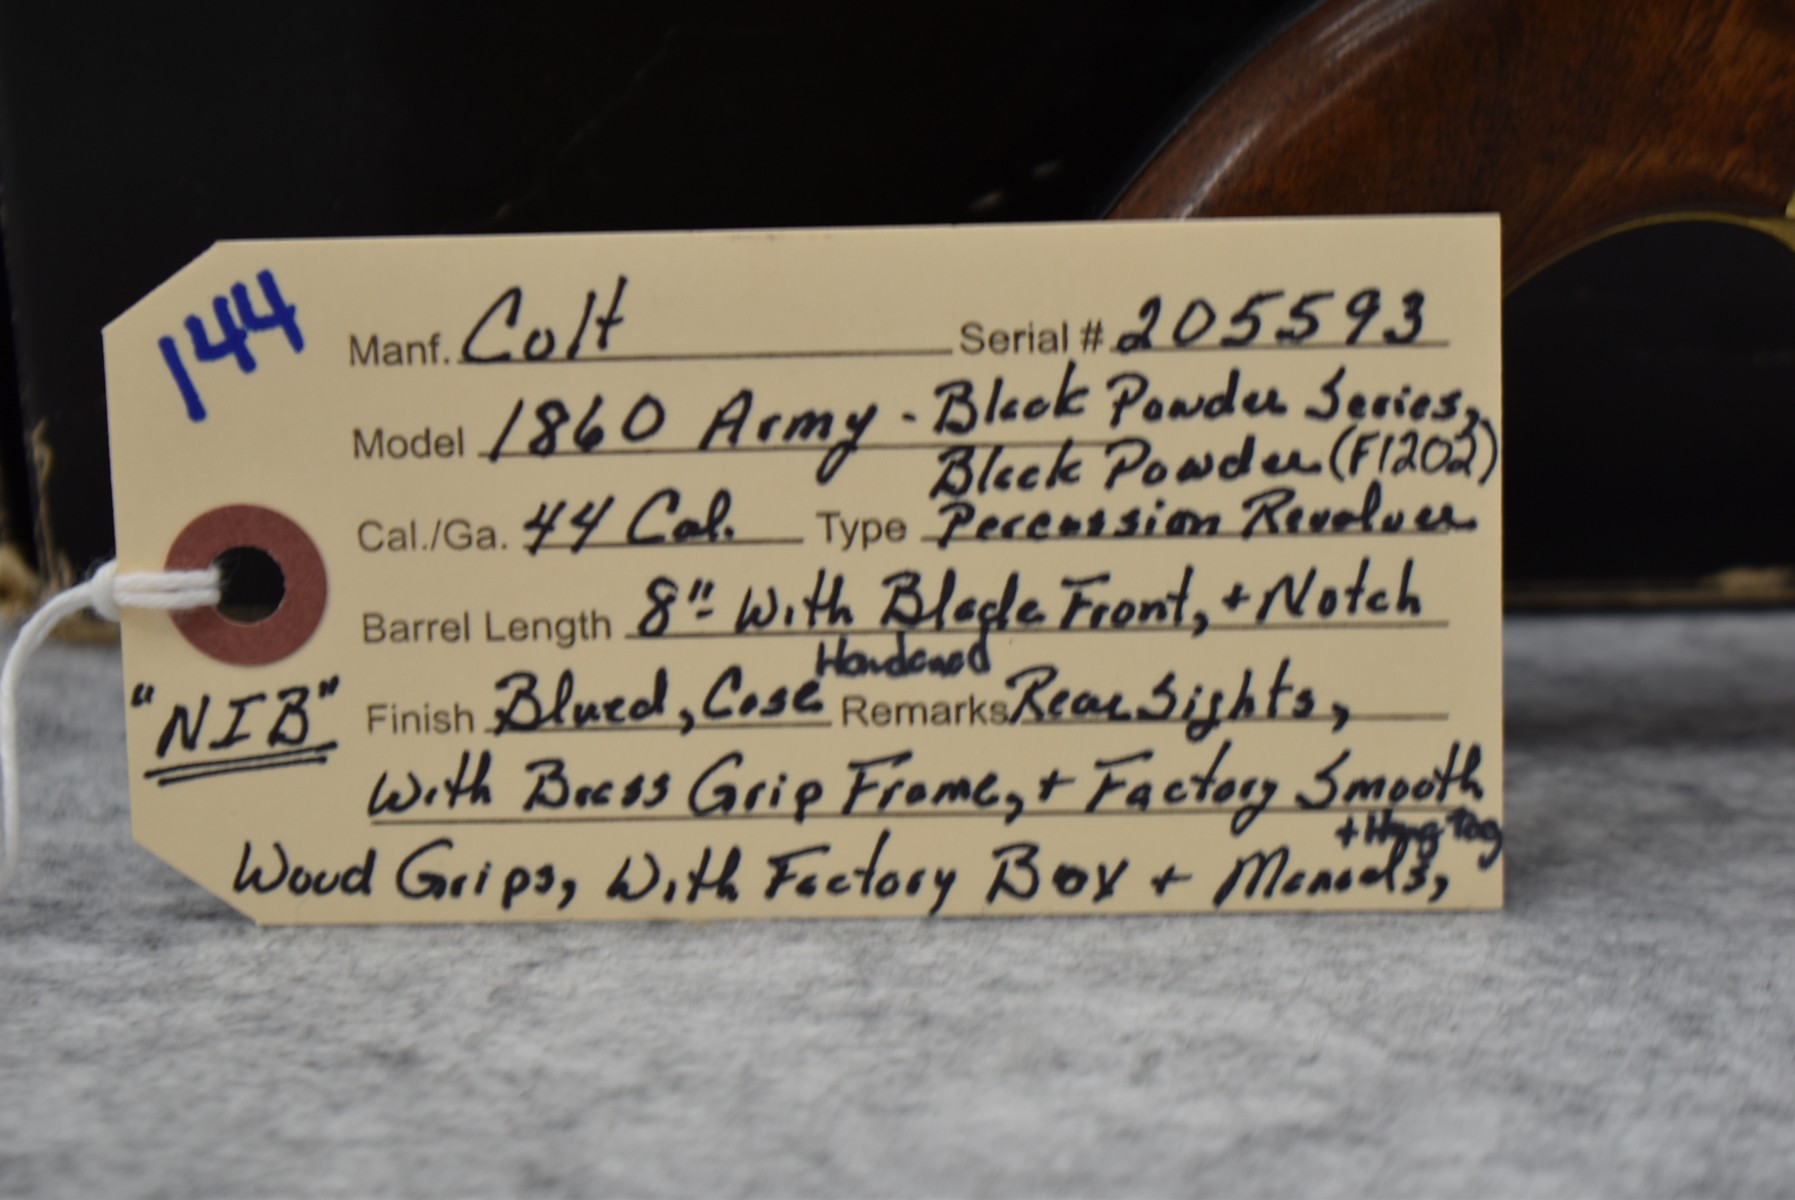 144
Manf. Colt Serial # 205593
Model 1860 Army - Black Powder Series,
Black Powder (F1202)
Cal./Ga. 44 Cal. Type Percussion Revolver
Barrel Length 8" - With Blade Front, + Notch
Hardened
"NIB" Finish Blued, Case Remarks Rear Sights,
With Brass Grip Frame, + Factory Smooth
+ Hang Tag
Wood Grips, With Factory Box + Manuals,